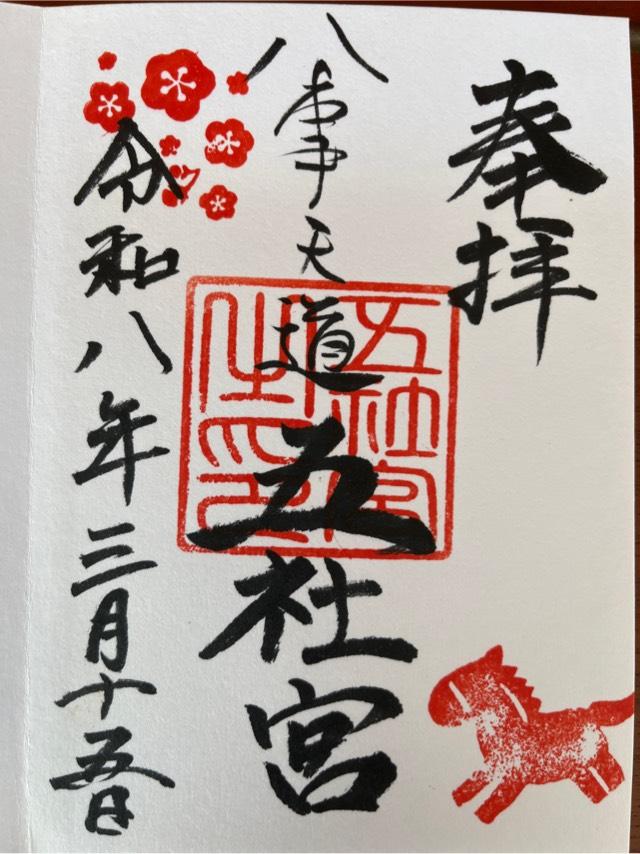 奉拝
八事天道
五社宮
五社宮
之印
令和八年三月十五日